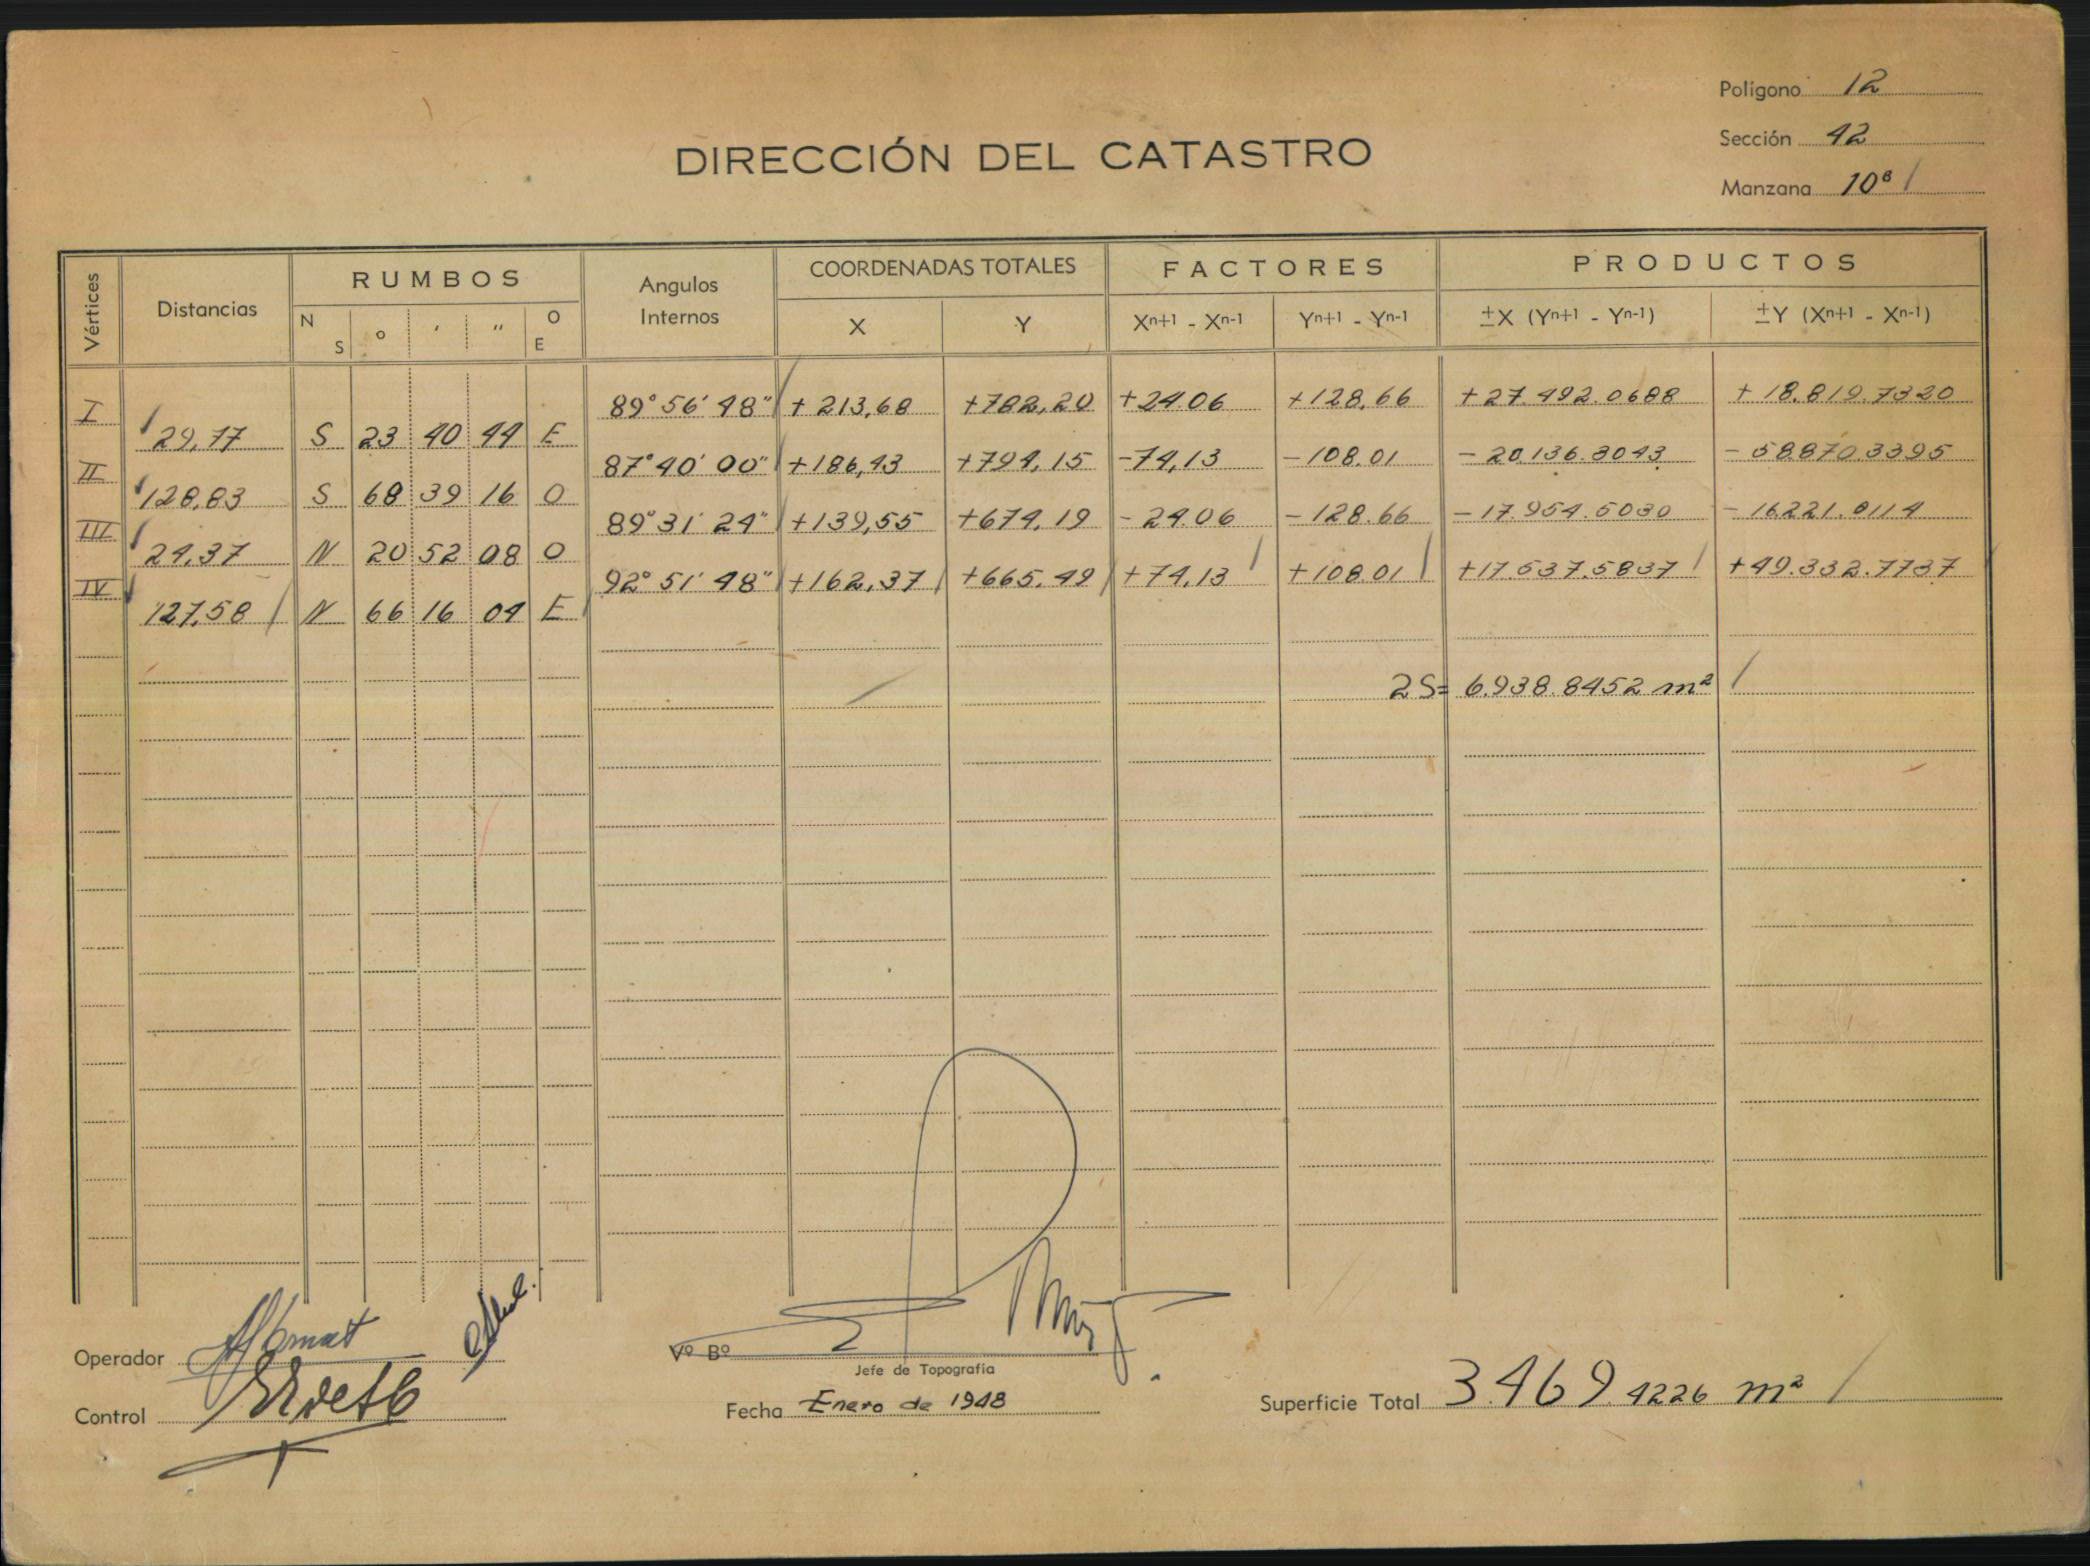 Polígono 12
Sección 42
Manzana 10ᴮ
DIRECCIÓN DEL CATASTRO
Vértices Distancias RUMBOS Angulos Internos COORDENADAS TOTALES FACTORES PRODUCTOS
N S ° ′ ″ O E X Y Xn+1 - Xn-1 Yn+1 - Yn-1 ±X (Yn+1 - Yn-1) ±Y (Xn+1 - Xn-1)
I 89° 56' 48" + 213,68 +782,20 +24.06 +128,66 +27.492.0688 + 18.819.7320
29,77 S 23 40 44 E
II 87° 40' 00" +186,43 +794,15 -74,13 -108.01 - 20.136.3043 - 58.870.3395
128,83 S 68 39 16 O
III 89° 31' 24" +139,55 +674,19 - 24.06 -128.66 -17.954.5030 - 16.221.0114
24,37 N 20 52 08 O
IV 92° 51' 48" +162,37 +665.49 +74,13 +108.01 +17.537.5837 +49.332.7737
127,58 N 66 16 04 E
2S= 6.938.8452 m²
Operador
Vº Bº
Jefe de Topografía
Control
Fecha Enero de 1948
Superficie Total 3.469.4226 m²